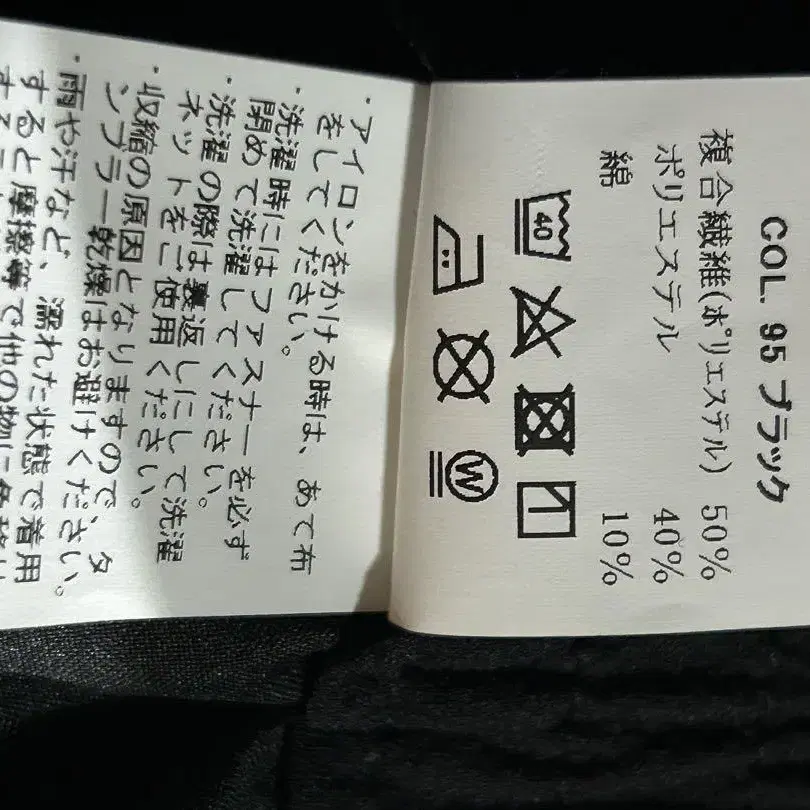 COL. 95 ブラック
複合繊維(ポリエステル) 50%
ポリエステル 40%
綿 10%
40
W
・アイロンをかける時は、あて布
をしてください。
・洗濯時にはファスナーを必ず
閉めて洗濯してください。
・洗濯の際は裏返しにして洗濯
ネットをご使用ください。
・収縮の原因となりますので、タ
ンブラー乾燥はお避けください。
・雨や汗など、濡れた状態で着用
すると摩擦等で他の物に色移り